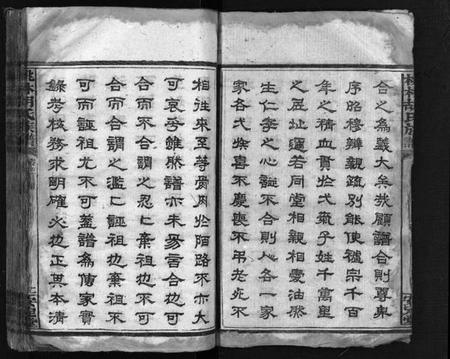 合之為義大矣哉顧譜合則尊卑
序昭穆辨親疏別能使號宗千百
年之精血貫於弌氣子姓千萬里
之居址邇若同堂相親相愛油然
生仁孝之心誕不合則人各一家
家各弌族喜不慶喪不弔老死不
相往來至等骨肉於陌路不亦大
可哀乎雖然譜亦未易言合也可
合而不合謂之忍〻棄祖也不可
合而合謂之濫〻誣祖也棄祖不
可而誣祖尤不可蓋譜為傳家實
錄考核務求明確也正其本清
桃林胡氏族譜